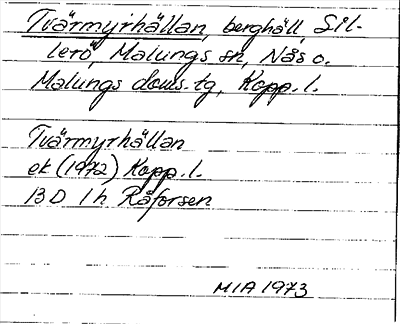 Tvärmyrhällan, berghäll, Sil-
lerö, Malungs sn, Nås o.
Malungs doms.tg, Kopp. l.
Tvärmyrhällan
ek (1972) Kopp. l.
13 D 1 h Råforsen
MIA 1973